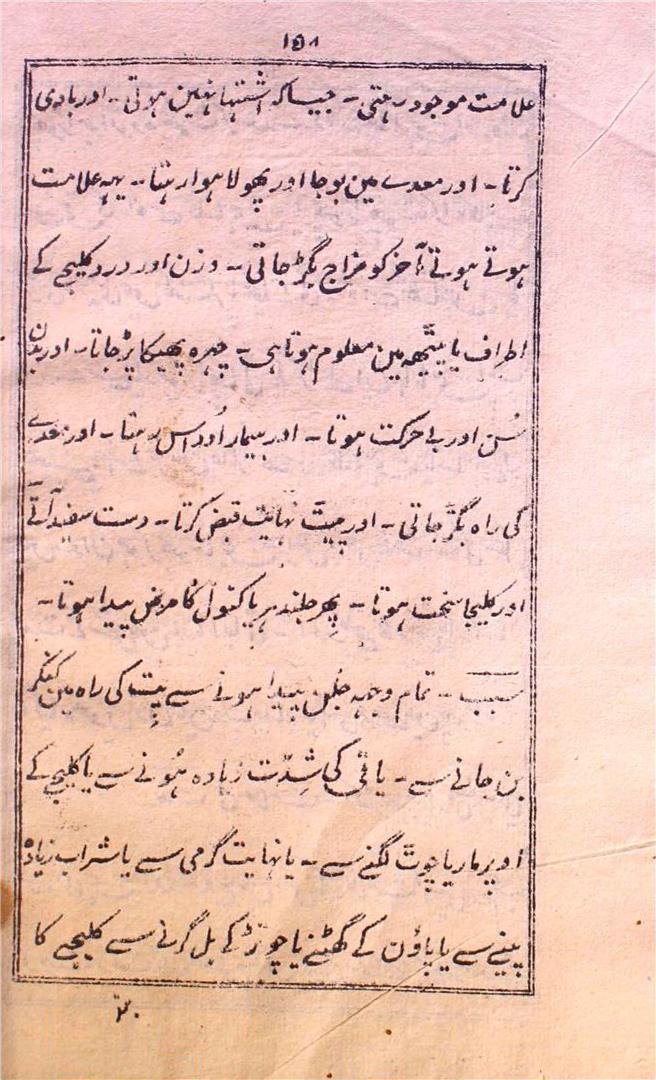 ١٥٨
علامت موجود رہتی ۔ جیسا کہ اشتہا نہین ہوتی ۔ اور بادی
کرتا ۔ اور معدے مین بوجا اور پھولا ہوا رہتا ۔ یہہ علامت
ہوتے ہوتے آخر کو مزاج بگڑ جاتی ۔ وزن اور درد کلیجے کے
اطراف یا پیٹھہ مین معلوم ہوتا ہی ۔ چہرہ پھیکا پڑ جاتا ۔ اور بدن
سُن اور بے حرکت ہوتا ۔ اور بیمار اُوداس رہتا ۔ اور معدے
کی راہ بگڑ جاتی ۔ اور پیٹ نہایت قبض کرتا ۔ دست سفید آتے
اور کلیجا سخت ہوتا ۔ پھر جلندہر یا کنول کا مرض پیدا ہوتا ۔
سبب ۔ تمام وجہہ جلن پیدا ہونے سے پِت کی راہ مین کنکر
بن جانے سے ۔ یا تپ کی شِدّت زیادہ ہُونے سے یا کلیجے کے
اوپر مار یا چوٹ لگنے سے ۔ یا نہایت گرمی سے یا شراب زیادہ
پینے سے یا پاؤن کے گھٹنے یا چوتڑ کے بل گرنے سے کلیجے کا
٣٠